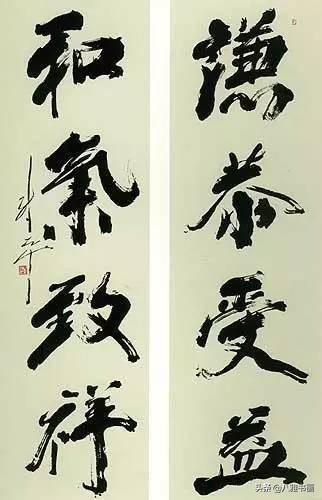 謙恭受益
和氣致祥
头条@八雅书画